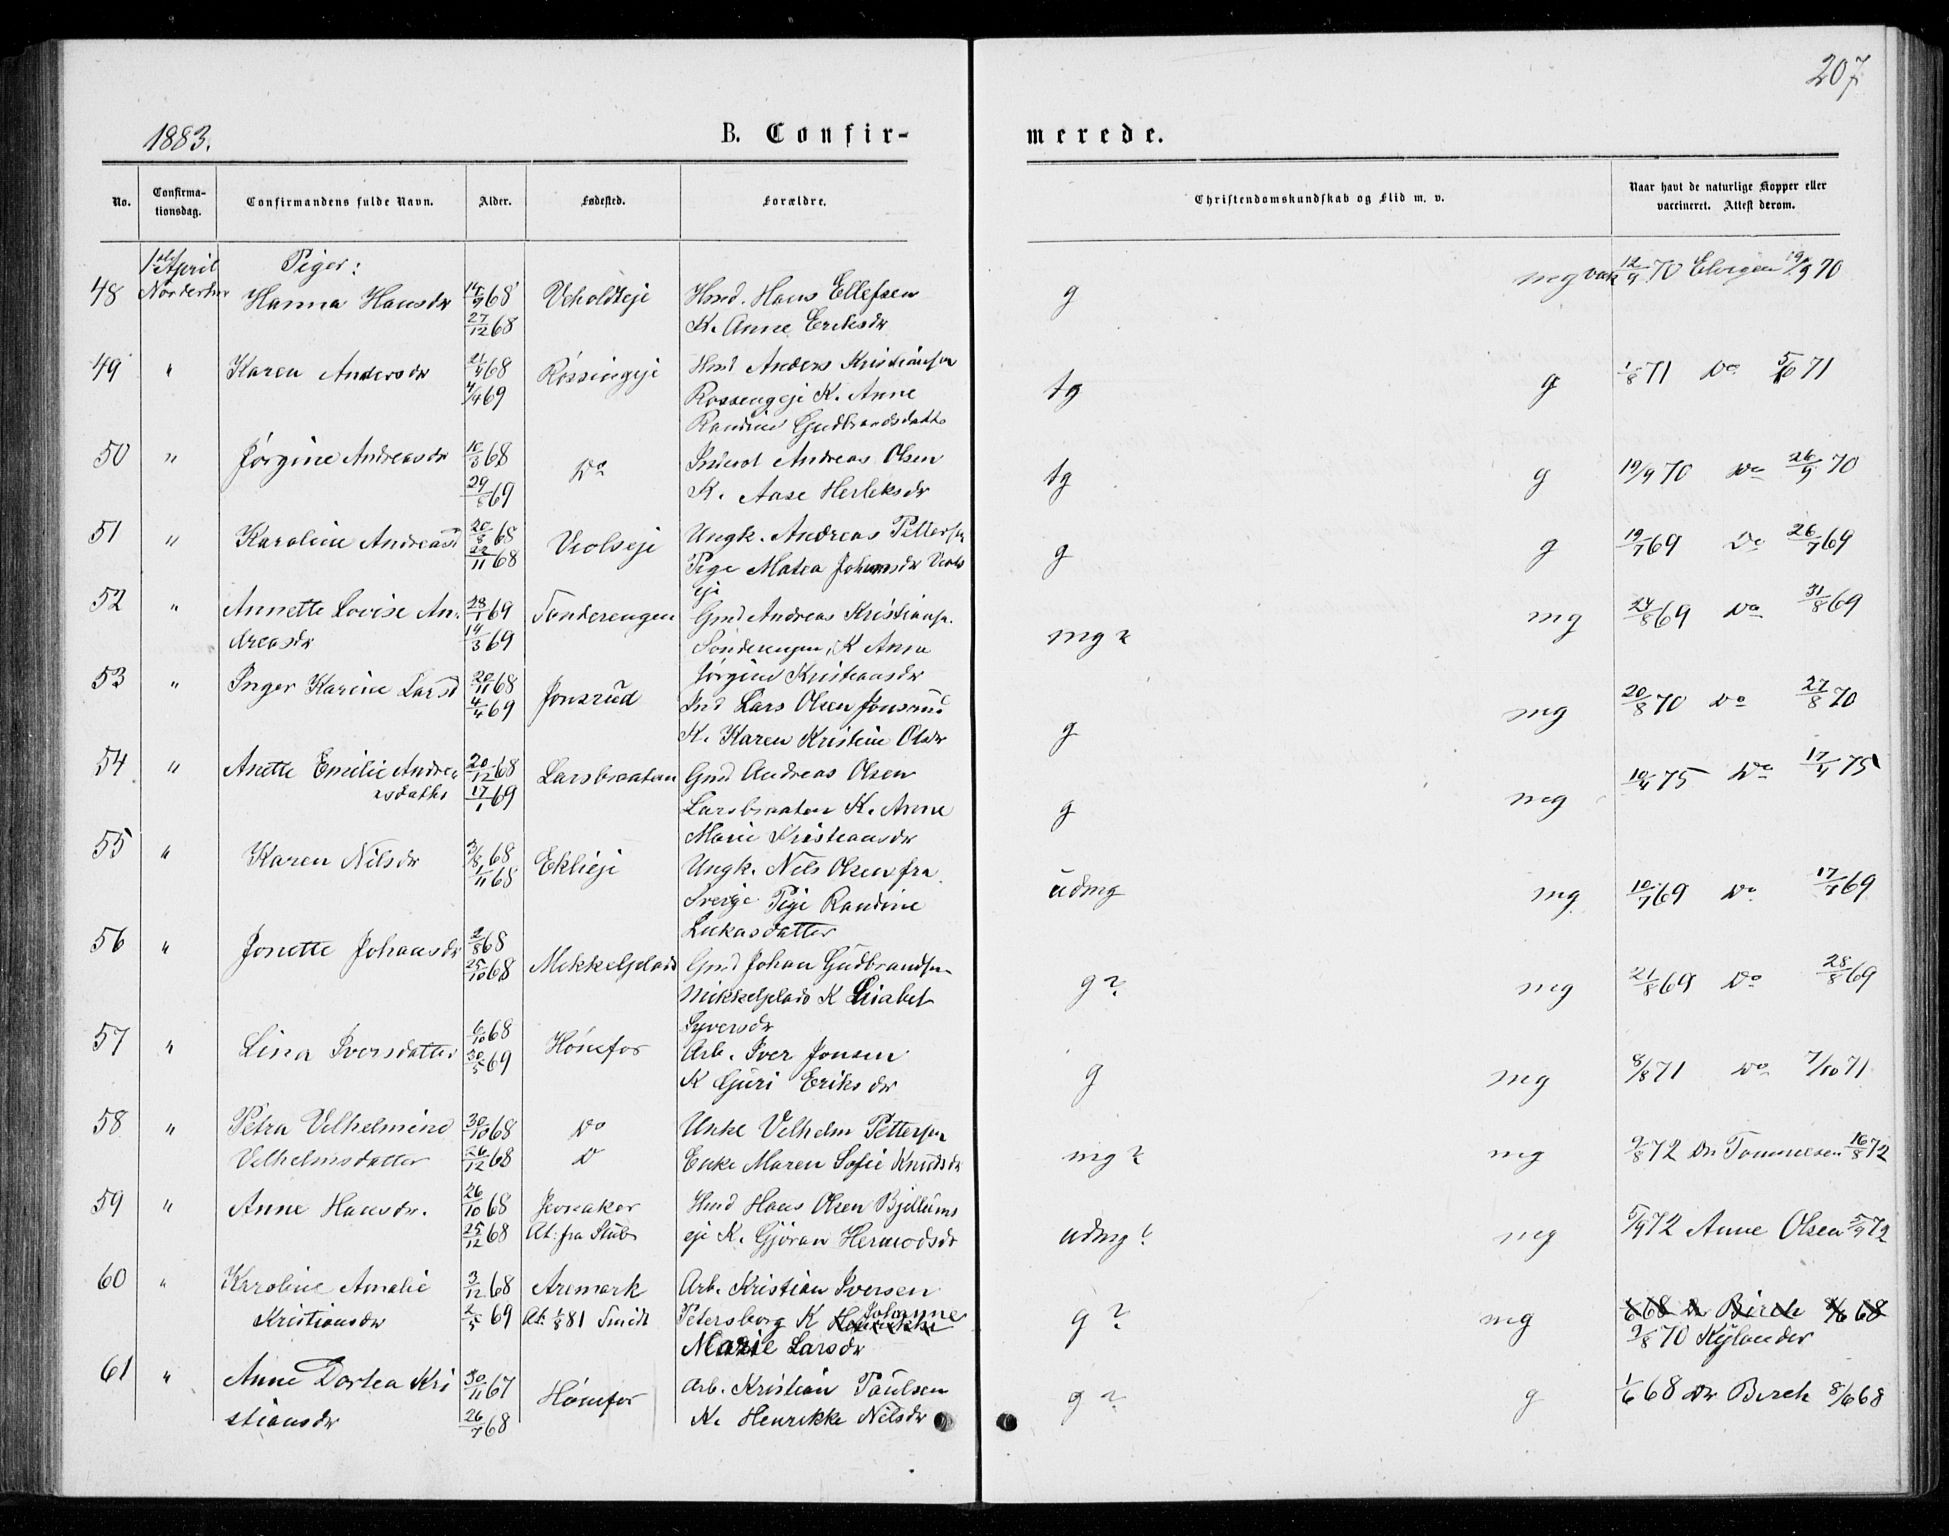 207
1883.
B. Confir-
merede.
No.
Confirma-
tionsdag.
Confirmandens fulde Navn.
Alder.
Fødested.
Forældre.
Christendomskundskab og Flid m. v.
Naar havt de naturlige Kopper eller
vaccineret. Attest derom.
1ste April Piger:
48 Norderhov Hanna Hansdr 14/9 68 Veholdteje Hmd. Hans Ellefsen g mg vak 12/9 70 19/9 70
27/12 68 K. Anne Eriksdr
49 " Karen Andersdr 68 Røssingeje Hmd Anders Kristiansen tg g 1/8 71 Do 71
4/4 69 Rossengeje K. Anne
Randine Gudbrandsdatte
50 " Jørgine Andreasdr 68 Do Inderst Andreas Olsen tg g 19/9 70 Do 26/9 70
29/8 69 K. Aase Herleksdr
51 " Karoline Andreasd 20/8 68 Veolseje Ungk. Andreas Pettersen g g 19/7 69 Do 26/7 69
22/11 68 Pige Matea Johansdr Veols
eje
52 " Annette Lovise An- 28/1 69 Tanderengen Gmd Andreas Kristiansen mg ? mg 24/8 69 Do 31/8 69
dreasdr 14/3 69 Sönderengen, K Anna
Jørgine Kristiansdr
53 " Inger Karine Larsd 20/11 68 Jonsrud Ind Lars Olsen Jonsrud g mg 20/8 70 Do 27/8 70
4/4 69 K. Karen Kristine Olsdr
54 " Anette Emilie Andre 20/12 68 Larsbraaten Gmd Andreas Olsen g mg 10/4 75 Do 17/4 75
asdatter 17/1 69 Larsbraaten K. Anne
Marie Kristiansdr
55 " Karen Nilsdr 3/8 68 Eklieje Ungk. Nils Olsen fra udmg mg 10/7 69 Do 17/7 69
1/11 68 Sverige Pige Randine
Lukasdatter
56 " Jonette Johansdr 2/8 68 Mikkelplads Gmd Johan Gudbrandsen g ? mg 21/8 69 Do 28/8 69
25/10 68 Mikkelplads K Lisabet
Syversdr
57 " Lina Iversdatter 6/10 68 Hönefos Arb. Iver Jonsen g mg 8/8 71 Do 7/10 71
30/5 69 K Guri Eriksdr
58 " Petra Vilhelmine 30/10 68 Do Unke Vilhelm Pettersen mg ? mg 9/8 72 Dr Tommelsen 16/8 72
Vilhelmsdatter 26/12 68 D Enke Maren Sofie Knudsdr
59 " Anne Hansdr. 26/10 68 Jevnaker Hmd Hans Olsen Bjellums udmg ? mg 5/9 72 Anne Olsen 5/9 72
25/12 68 At: fra Stubs eje K. Gjöran Hermodsdr
60 " Karoline Amalie 3/12 68 Aremark Arb. Kristian Iversen g ? mg 1/6 68 Dr Birch 8/6 68
Kristiansdr 2/5 69 At: 1/8 81 Smidt Petersborg K Henrikke Johanne 9/8 70 Kylander
Marie Larsdr
61 " Anne Dortea Kri 30/11 67 Hönefos Arb. Kristian Paulsen g ? g 1/6 68 Dr Birch 8/6 68
stiansdr 26/7 68 K. Henrikke Nilsdr